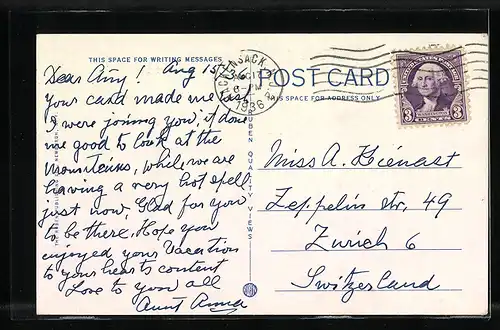 THIS SPACE FOR WRITING MESSAGES
POST CARD
THIS SPACE FOR ADDRESS ONLY
HACKENSACK
6 PM
1936
UNITED STATES POSTAGE
3 3
CENTS
Dear Amy! Aug 15
Your card made me wish
I were joining you, it done
me good to look at the
Mountains, while we are
having a very hot spell
just now, Glad for you
to be there. Hope you
enjoyed your Vacation
to your hearts content
Love to you all
Aunt Anna
RUBEN QUALITY VIEWS
Miss A. Kienast
Zeppelin str. 49
Zurich 6
Switzerland